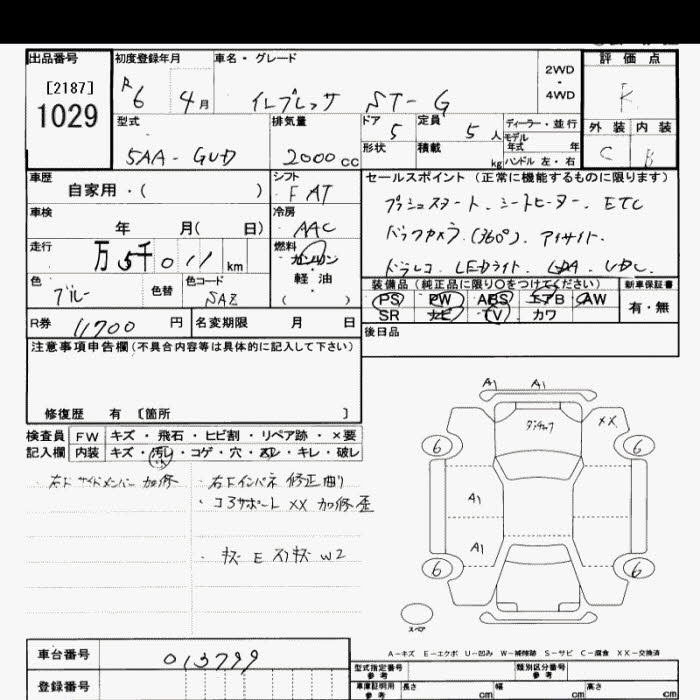 出品番号 初度登録年月 車名・グレード 2WD・4WD 評価点
[2187]
1029
R6 4月 インプレッサ ST-G R
型式 排気量 ドア 定員 ディーラー・並行 外装 内装
5AA-GUD 2000cc 5 5人 モデル年式 年 C B
形状 積載 kg ハンドル 左・右
車歴 シフト セールスポイント (正常に機能するものに限ります)
自家用・( ) F AT
プッシュスタート、シートヒーター、ETC
車検 冷房
年 月( 日) AAC
バックカメラ(360°)、アイサイト、
走行 燃料
万5千011km ガソリン・軽油 ( )
ドラレコ LEDライト LDA VDC
色 色替 色コード 装備品(純正品に限り○をつけてください) 新車保証書
ブルー SAZ PS PW ABS エアB AW 有・無
SR ナビ TV カワ
R券 11700円 名変期限 月 日 後日品
注意事項申告欄(不具合内容等は具体的に記入して下さい)
修復歴 有 〔箇所 〕
検査員記入欄 FW キズ・飛石・ヒビ割・リペア跡・×要
内装 キズ・汚レ・コゲ・穴・スレ・キレ・破レ
・右Fサイドメンバー 加修 ・右Fインパネ 修正曲り
・コアサポートL XX 加修 歪
・キズ E スリキズ W2
A1 A1
ダンチェック XX
6 6
A1
A1
6 6
スペア
A-キズ E-エクボ U-凹み W-補修跡 S-サビ C-腐食 XX-交換済
車台番号 013799
型式指定番号 参考 類別区分番号 参考
登録番号
車庫証明用 参考 長さ cm 幅 cm 高さ cm